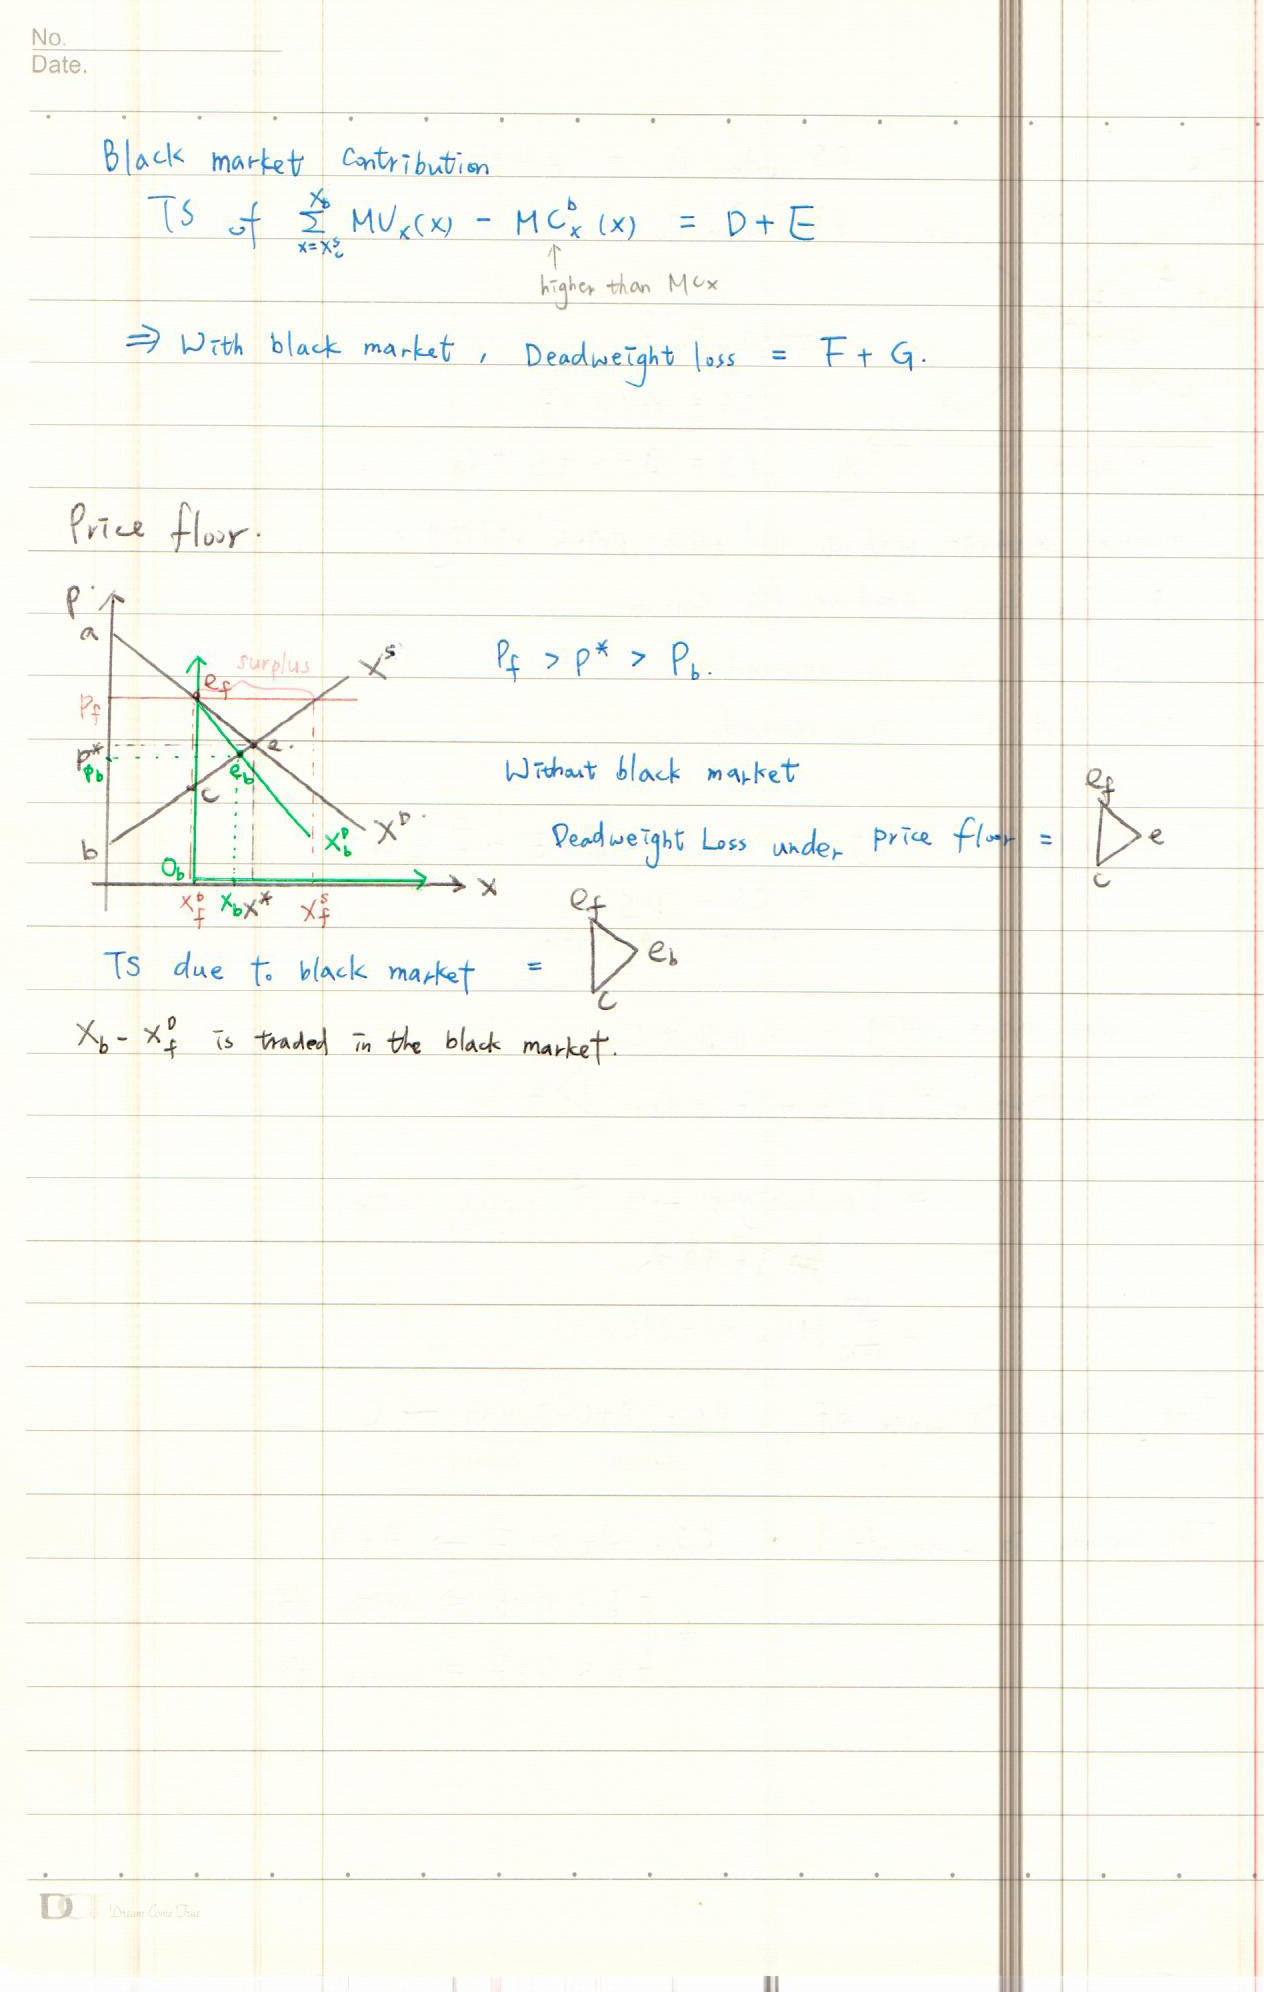 No.
Date.
Black market contribution
TS of Σ_{x=x_c^s}^{x_b} MU_x(x) - MC_x^b(x) = D + E
↑
higher than MCx
⇒ With black market, Deadweight loss = F + G.
Price floor.
P
a
surplus
X^s
e_f
P_f
P_f > P* > P_b.
P*
e.
P_b
e_b
Without black market
c
e_f
X_b^D
X^D
Deadweight Loss under price floor =
e
b
c
O_b
x
x_f^D
x_b
x*
x_f^s
e_f
TS due to black market =
e_b
c
X_b - X_f^D is traded in the black market.
Dream Come True